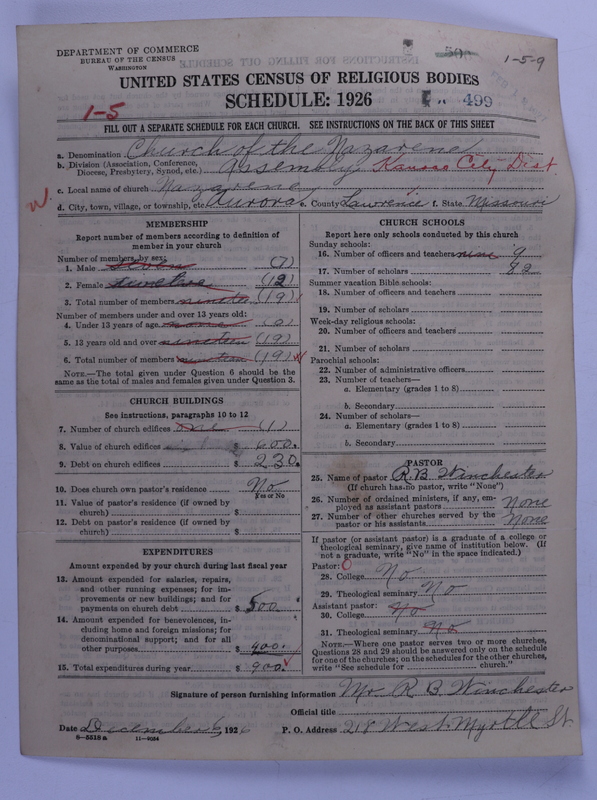 DEPARTMENT OF COMMERCE
BUREAU OF THE CENSUS
WASHINGTON
1-5-9
UNITED STATES CENSUS OF RELIGIOUS BODIES
SCHEDULE: 1926
1-5
499
FILL OUT A SEPARATE SCHEDULE FOR EACH CHURCH. SEE INSTRUCTIONS ON THE BACK OF THIS SHEET
a. Denomination Church of the Nazarene
b. Division (Association, Conference, Diocese, Presbytery, Synod, etc.) Assembly Kansas City Dist.
c. Local name of church Nazarene
d. City, town, village, or township, etc. Aurora e. County Lawrence f. State Missouri
MEMBERSHIP
Report number of members according to definition of
member in your church
Number of members, by sex:
1. Male (7)
2. Female twelve (12)
3. Total number of members nineteen (19)
Number of members under and over 13 years old:
4. Under 13 years of age none (0)
5. 13 years old and over nineteen (19)
6. Total number of members nineteen (19)
NOTE.—The total given under Question 6 should be the
same as the total of males and females given under Question 3.
CHURCH BUILDINGS
See instructions, paragraphs 10 to 12
7. Number of church edifices One (1)
8. Value of church edifices $ 600.
9. Debt on church edifices $ 230.
10. Does church own pastor's residence No
Yes or No
11. Value of pastor's residence (if owned by
church) $
12. Debt on pastor's residence (if owned by
church) $
EXPENDITURES
Amount expended by your church during last fiscal year
13. Amount expended for salaries, repairs,
and other running expenses; for im-
provements or new buildings; and for
payments on church debt $ 500.
14. Amount expended for benevolences, in-
cluding home and foreign missions; for
denominational support; and for all
other purposes $ 400.
15. Total expenditures during year $ 900.
CHURCH SCHOOLS
Report here only schools conducted by this church
Sunday schools:
16. Number of officers and teachers nine 9
17. Number of scholars 82
Summer vacation Bible schools:
18. Number of officers and teachers
19. Number of scholars
Week-day religious schools:
20. Number of officers and teachers
21. Number of scholars
Parochial schools:
22. Number of administrative officers
23. Number of teachers—
a. Elementary (grades 1 to 8)
b. Secondary
24. Number of scholars—
a. Elementary (grades 1 to 8)
b. Secondary
PASTOR
25. Name of pastor R. B. Winchester
(If church has no pastor, write "None")
26. Number of ordained ministers, if any, em-
ployed as assistant pastors None
27. Number of other churches served by the
pastor or his assistants None
If pastor (or assistant pastor) is a graduate of a college or
theological seminary, give name of institution below. (If
not a graduate, write "No" in the space indicated.)
Pastor: 0
28. College No
29. Theological seminary No
Assistant pastor:
30. College No
31. Theological seminary No
NOTE.—Where one pastor serves two or more churches,
Questions 28 and 29 should be answered only on the schedule
for one of the churches; on the schedules for the other churches,
write "See schedule for church."
Signature of person furnishing information Mr. R. B. Winchester
Official title
Date December 6, 1926 P. O. Address 218 West Myrtle St
8—5518a 11—9034